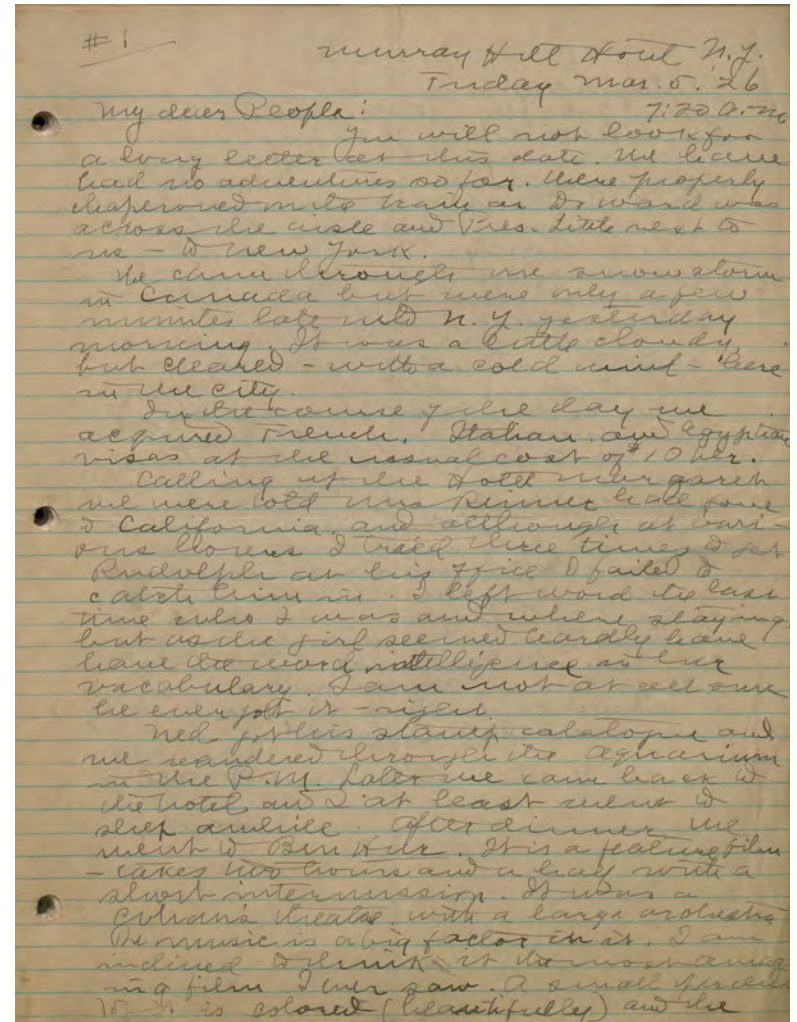 #1
Murray Hill Hotel N.Y.
Friday Mar. 5. '26
7:20 a.m.
My dear People:
You will not look for
a long letter at this date. We have
had no adventures so far. Were properly
chaperoned on the train as Dr Ward was
across the aisle and Pres. Little next to
us – to New York.
We came through one snow storm
in Canada but were only a few
minutes late into N.Y. yesterday
morning. It was a little cloudy
but cleared – with a cold wind – here
in the city.
In the course of the day we
acquired French, Italian and Egyptian
visas at the usual cost of $10 per.
Calling up the Hotel Margaret
we were told Mrs had gone
to California, and although at vari-
ous hours I tried three times to get
Rudolph at his office I failed to
catch him in. I left word the last
time who I was and where staying,
but as the girl seemed hardly have
have the word intelligence in her
vocabulary. I am not at all sure
he ever got it – right.
Ned got his stamp catalogue and
we wandered through the aquarium
in the P.M. Later we came back to
the hotel and I at least went to
sleep awhile. After dinner we
went to Ben Hur. It is a feature film
– takes two hours and a half with a
short intermission. It was a
theatre with a large orchestra
The music is a big factor in it. I am
inclined to think it the most amaz-
ing film I ever saw. A small
of it is colored (beautifully) and the